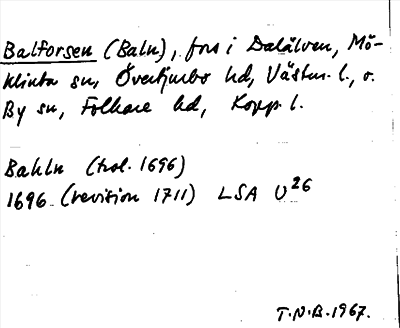 Balforsen (Baln), fors i Dalälven, Mö-
klinta sn, Övertjurbo hd, Västm. l., o.
By sn, Folkare hd, Kopp. l.
Bahln (trol. 1696)
1696 (revision 1711) LSA U26
T.N.B. 1967.